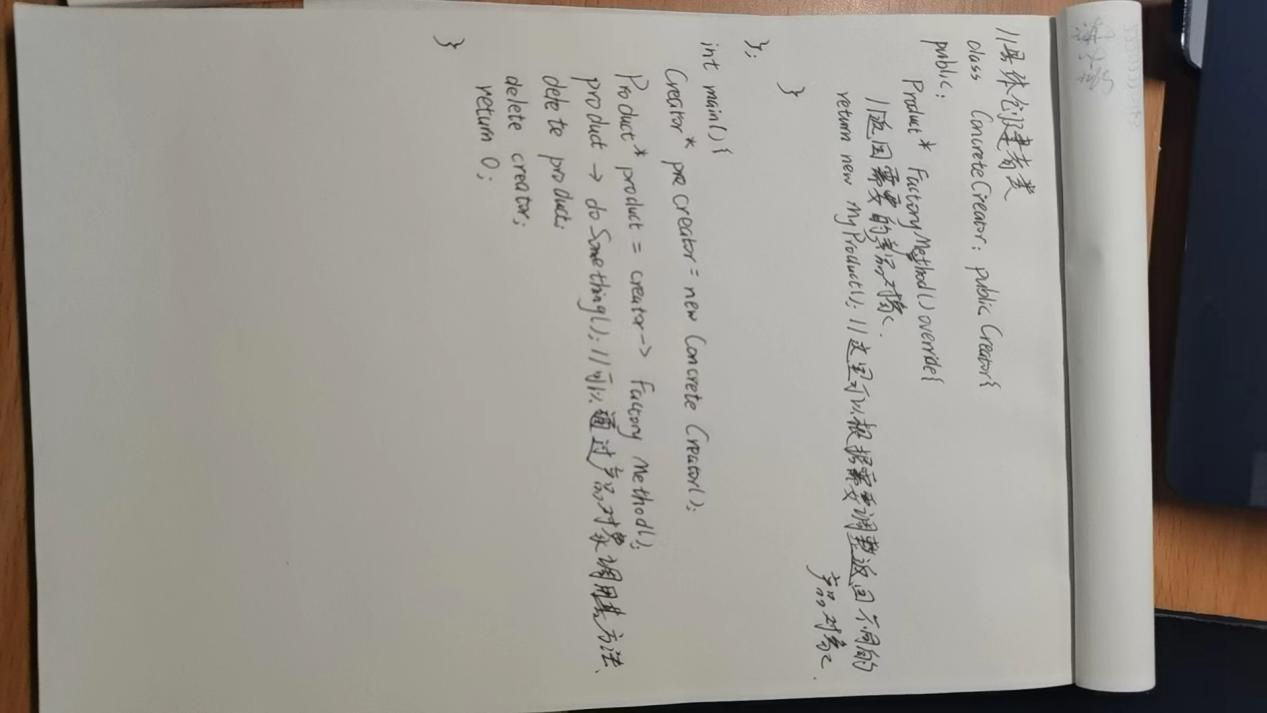 //具体创建者类
class ConcreteCreator: public Creator{
public:
Product* FactoryMethod() override{
//返回需要的产品对象.
return new MyProduct(); //这里可以根据需要调整返回不同的
产品对象.
}
};
int main(){
Creator* pre creator = new Concrete Creator();
Product* product = creator-> Factory Method();
product → doSomething(); //可以通过产品对象调用其方法.
delete product;
delete creator;
return 0;
}